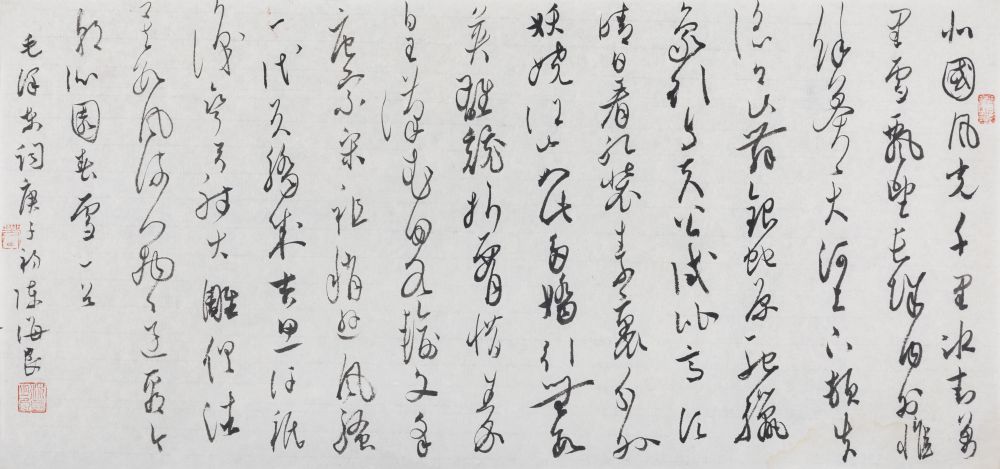 北國風光千里冰封萬
里雪飄望長城內外惟
餘莽莽大河上下頓失
滔滔山舞銀蛇原馳臘
象欲與天公試比高須
晴日看紅裝素裹分外
妖嬈江山如此多嬌引無數
英雄競折腰惜秦
皇漢武略輸文采
唐宗宋祖稍遜風騷
一代天驕成吉思汗祇
識彎弓射大雕俱往
矣數風流人物還看今
朝沁園春雪一首
毛澤東詞庚子初陳海良